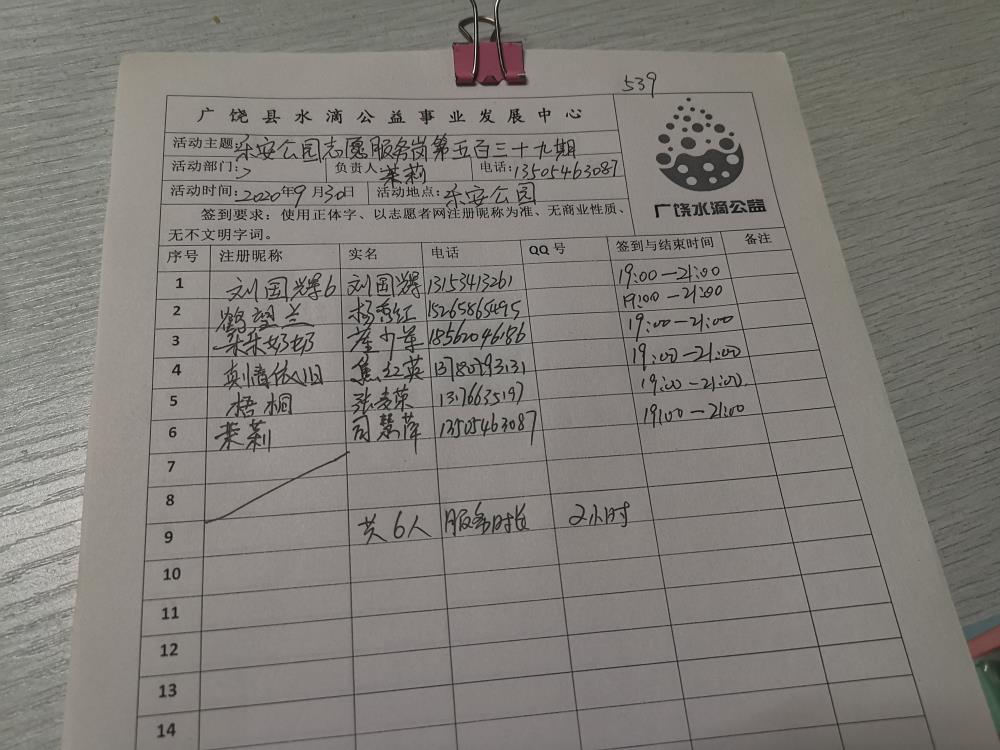 539
广饶县水滴公益事业发展中心
活动主题:乐安公园志愿服务岗第五百三十九期
活动部门: 负责人:茉莉 电话:13505463087
活动时间:2020年9月30日 活动地点:乐安公园
广饶水滴公益
签到要求:使用正体字、以志愿者网注册昵称为准、无商业性质、
无不文明字词。
序号 注册昵称 实名 电话 QQ号 签到与结束时间 备注
1 刘国辉6 刘国辉 13153413261 19:00—21:00
2 鹤望兰 杨秀红 15265865495 19:00—21:00
3 朵朵奶奶 崔少军 18562046186 19:00—21:00
4 真情依旧 焦红英 13780793131 19:00—21:00
5 梧桐 19:00—21:00
6 茉莉 司慧萍 13505463087 19:00—21:00
7
8
9 共6人 服务时长 2小时
10
11
12
13
14